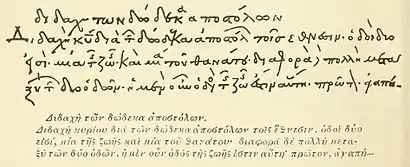 διδαχὴ τῶν δώδεκα ἀποστόλων
Διδαχὴ κυ διὰ τ δώδεκα ἀποστόλ τοῖς ἔθνεσιν. ὁδοὶ δύο
εἰσί, μία τ ζω καὶ μία τοῦ θανάτου, διαφορὰ δὲ πολλὴ μετα
ξὺ τ δύο ὁδῶν. ἡ μὲν οὖν ὁδὸς τ ζω ἐστιν αὕτη· πρῶτ ἀγαπή
Διδαχὴ τῶν δώδεκα ἀποστόλων.
Διδαχὴ κυρίου διὰ τῶν δώδεκα ἀποστόλων τοῖς ἔθνεσιν. ὁδοὶ δύο
εἰσί, μία τῆς ζωῆς καὶ μία τοῦ θανάτου· διαφορὰ δὲ πολλὴ μετα-
ξὺ τῶν δύο ὁδῶν. ἡ μὲν οὖν ὁδὸς τῆς ζωῆς ἐστιν αὕτη· πρῶτον, ἀγαπή-